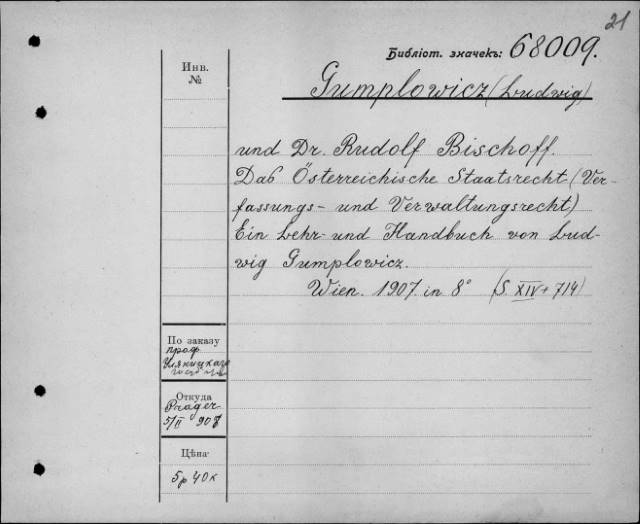 21
Библіот. значекъ: 68009.
Инв.
№
Gumplowicz (Ludwig)
und Dr. Rudolf Bischoff.
Das Österreichische Staatsrecht (Ver-
fassungs- und Verwaltungsrecht)
Ein Lehr- und Handbuch von Lud-
wig Gumplowicz.
Wien. 1907. in 8° (S. XIV + 714)
По заказу
проф
Откуда
Prager
5/II 907
Цѣна
5р 40к